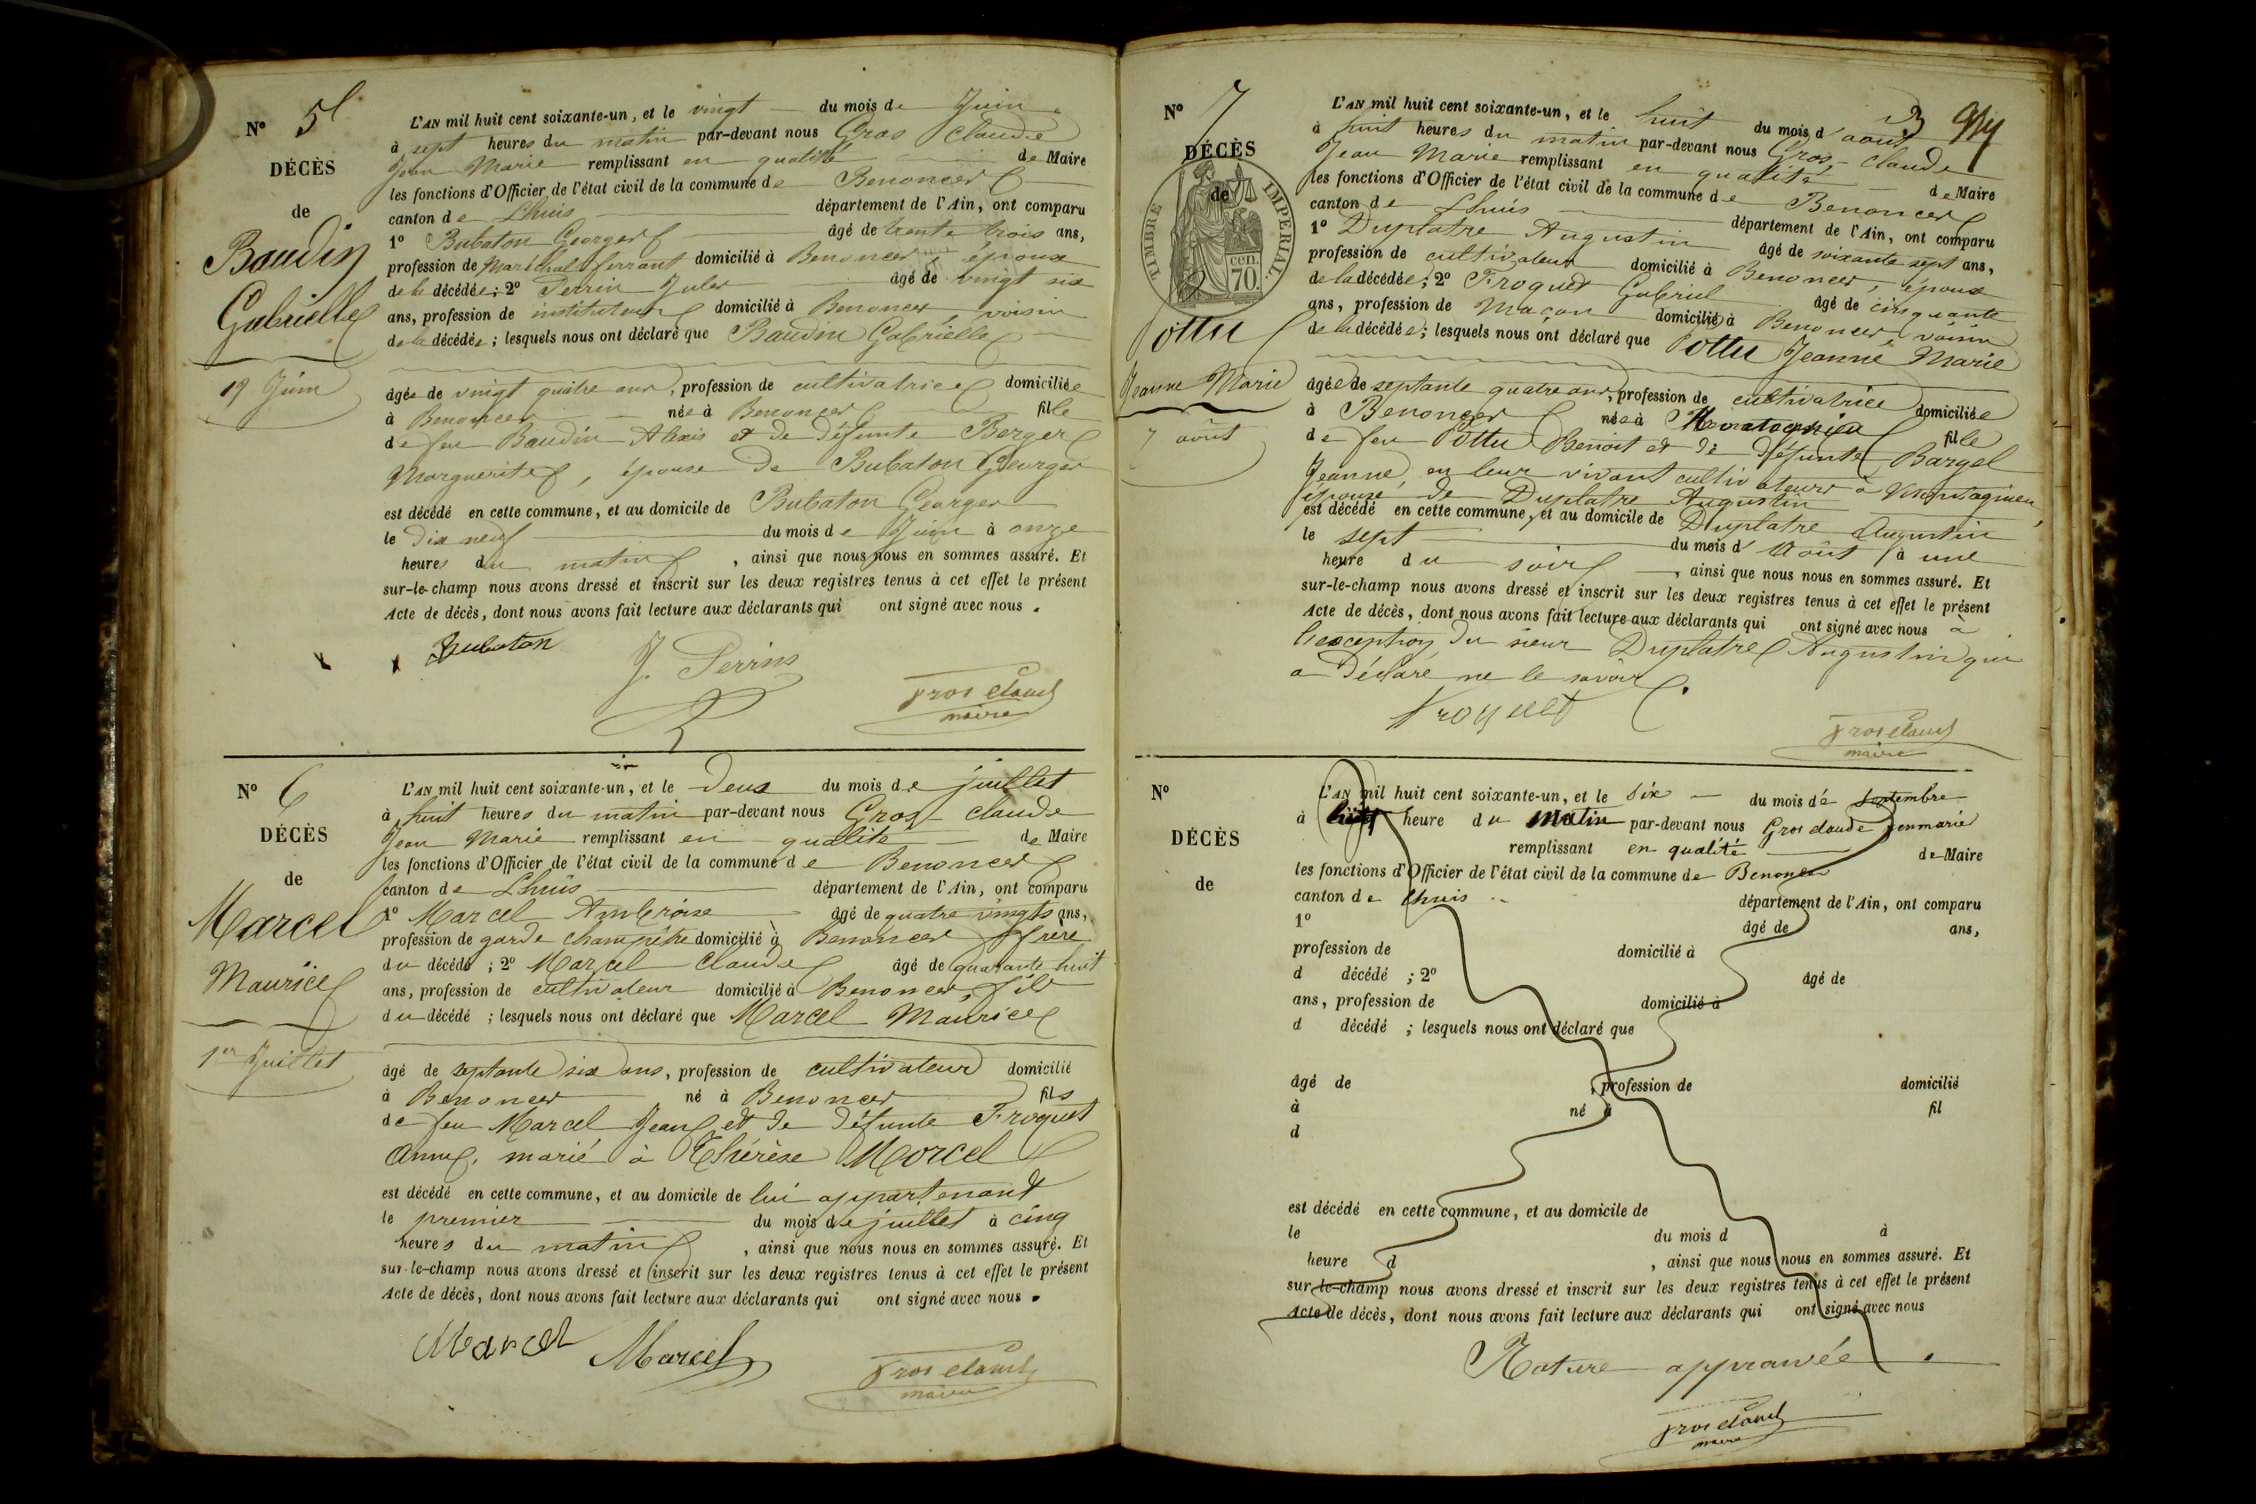 N° 5
DÉCÈS
de
Baudin
Gabrielle
19 Juin
L'AN mil huit cent soixante-un, et le vingt du mois de Juin
à sept heures du matin par-devant nous Gros Claude
Jean Marie remplissant en qualité de Maire
les fonctions d'Officier de l'état civil de la commune de Benonces
canton de Lhuis département de l'Ain, ont comparu
1° Bubaton Georges âgé de trente trois ans,
profession de Maréchal ferrant domicilié à Benonces, époux
de la décédée; 2° Perrin Jules âgé de vingt six
ans, profession de instituteur domicilié à Benonces, voisin
de la décédée; lesquels nous ont déclaré que Baudin Gabrielle
âgée de vingt quatre ans, profession de cultivatrice domiciliée
à Benonces née à Benonces fille
de feu Baudin Alexis et de défunte Berger
Marguerite, épouse de Bubaton Georges
est décédé en cette commune, et au domicile de Bubaton Georges
le dix neuf du mois de Juin à onze
heures du matin, ainsi que nous nous en sommes assuré. Et
sur-le-champ nous avons dressé et inscrit sur les deux registres tenus à cet effet le présent
Acte de décès, dont nous avons fait lecture aux déclarants qui ont signé avec nous.
Bubaton J. Perrin
Gros Claude
maire
N° 6
DÉCÈS
de
Marcel
Maurice
1er Juillet
L'AN mil huit cent soixante-un, et le deux du mois de juillet
à huit heures du matin par-devant nous Gros Claude
Jean Marie remplissant en qualité de Maire
les fonctions d'Officier de l'état civil de la commune de Benonces
canton de Lhuis département de l'Ain, ont comparu
1° Marcel Ambroise âgé de quatre vingts ans,
profession de garde champêtre domicilié à Benonces frère
du décédé; 2° Marcel Claude âgé de quarante huit
ans, profession de cultivateur domicilié à Benonces, fils
du décédé; lesquels nous ont déclaré que Marcel Maurice
âgé de septante six ans, profession de cultivateur domicilié
à Benonces né à Benonces fils
de feu Marcel Jean et de défunte Froquet
Anne, marié à Thérèse Marcel
est décédé en cette commune, et au domicile de lui appartenant
le premier du mois de juillet à cinq
heures du matin, ainsi que nous nous en sommes assuré. Et
sur-le-champ nous avons dressé et inscrit sur les deux registres tenus à cet effet le présent
Acte de décès, dont nous avons fait lecture aux déclarants qui ont signé avec nous.
Marcel Marcel
Gros Claude
maire
3
N° 7
DÉCÈS
de
TIMBRE IMPERIAL.
cen.
70.
Pottu
Jeanne Marie
7 août
L'AN mil huit cent soixante-un, et le huit du mois d'août
à huit heures du matin par-devant nous Gros Claude
Jean Marie remplissant en qualité de Maire
les fonctions d'Officier de l'état civil de la commune de Benonces
canton de Lhuis département de l'Ain, ont comparu
1° Duplatre Augustin âgé de soixante sept ans,
profession de cultivateur domicilié à Benonces, époux
de la décédée; 2° Froquet Gabriel âgé de cinquante
ans, profession de Maçon domicilié à Benonces, voisin
de la décédée; lesquels nous ont déclaré que Pottu Jeanne Marie
âgée de septante quatre ans, profession de cultivatrice domiciliée
à Benonces née à Montagnieu fille
de feu Pottu Benoit et de défunte Bargel
Jeanne, en leur vivant cultivateurs à Montagnieu,
épouse de Duplatre Augustin
est décédé en cette commune, et au domicile de Duplatre Augustin
le sept du mois d'Août à une
heure du soir, ainsi que nous nous en sommes assuré. Et
sur-le-champ nous avons dressé et inscrit sur les deux registres tenus à cet effet le présent
Acte de décès, dont nous avons fait lecture aux déclarants qui ont signé avec nous à
l'exception du sieur Duplatre Augustin qui
a déclaré ne le savoir.
Froquet
Gros Claude
maire
N°
DÉCÈS
de
L'AN mil huit cent soixante-un, et le six du mois de septembre
à heure du matin par-devant nous Gros claude jeanmarie
remplissant en qualité de Maire
les fonctions d'Officier de l'état civil de la commune de Benonces
canton de Lhuis département de l'Ain, ont comparu
1° âgé de ans,
profession de domicilié à
d décédé; 2° âgé de
ans, profession de domicilié à
d décédé; lesquels nous ont déclaré que
âgé de, profession de domicilié
à né à fil
d
est décédé en cette commune, et au domicile de
le du mois d à
heure d, ainsi que nous nous en sommes assuré. Et
sur-le-champ nous avons dressé et inscrit sur les deux registres tenus à cet effet le présent
Acte de décès, dont nous avons fait lecture aux déclarants qui ont signé avec nous
Rature approuvée.
Gros Claude
maire